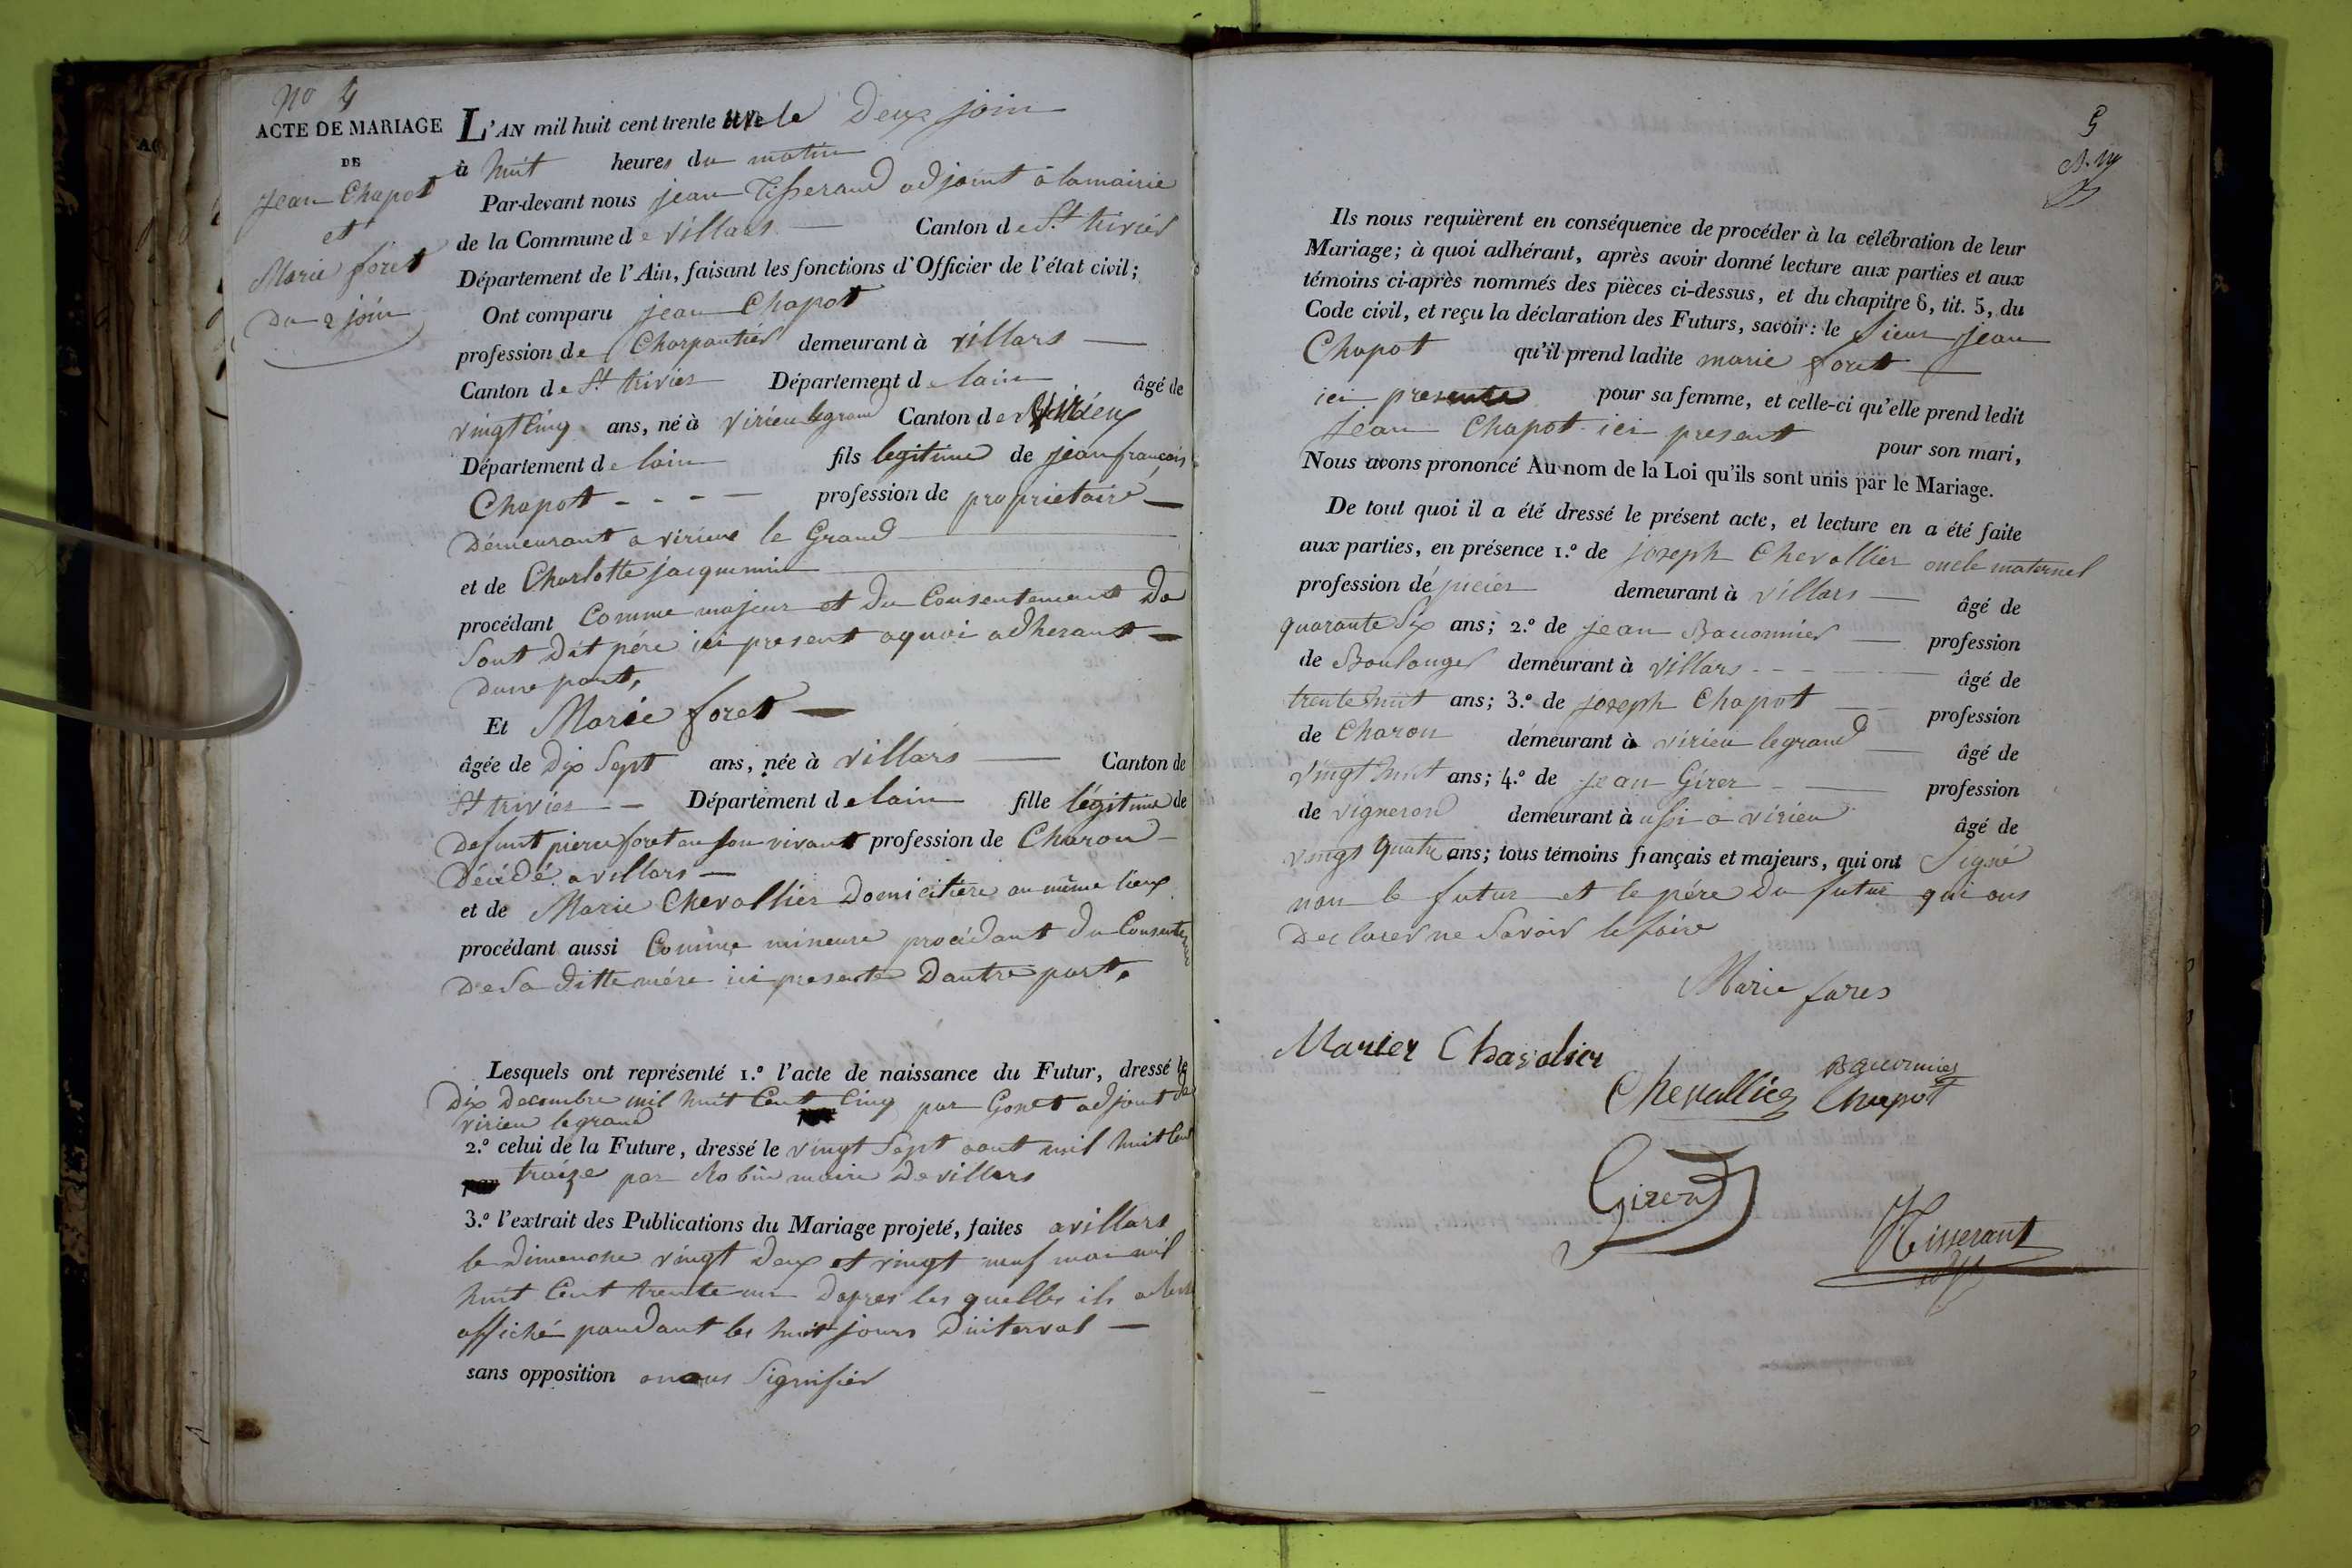 No 4
ACTE DE MARIAGE
DE
Jean Chapot
et
Marie foret
Du 2 join
L'AN mil huit cent trente une le Deux join
à huit heures du matin
Par-devant nous jean Tisserand adjoint a lamairie
de la Commune de villars — Canton de St trivier
Département de l'Ain, faisant les fonctions d'Officier de l'état civil;
Ont comparu jean Chapot
profession de Charpantier demeurant à villars —
Canton de St trivier Département de lain âgé de
vingt Cinq ans, né à virieu legrand Canton de virieux
Département de lain fils legitime de jean françois
Chapot - - - — profession de proprietaire —
Démeurant a virieux le Grand
et de Charlotte jacquemin
procédant Comme majeur et du Consentement De
Sont Dit pére ici present aquoi adherant —
Dune part,
Et Marie foret —
âgée de Dix Sept ans, née à villars — Canton de
St trivier — Département de lain fille légitime de
Defunt pierre foret en son vivant profession de Charon —
Décédé a villars —
et de Marie Chevallier Domicilière au même lieux
procédant aussi Comme mineure procédant du
De Sa ditte mére ici presente Dautre part.
Lesquels ont représenté 1.º l'acte de naissance du Futur, dressé le
Dix decembre mil huit Cent Cinq par Gonet adjoint de
virieu legrand
2.º celui de la Future, dressé le vingt Sept aout mil huit Cent
traize par Robin maire De villars
3.º l'extrait des Publications du Mariage projeté, faites a villars
le Dimenche vingt Deux et vingt neuf mai mil
huit Cent trente un Dapres les quelles ils
affiché pandant les huit jours Dinterval —
sans opposition anous Signifier
5
Ils nous requièrent en conséquence de procéder à la célébration de leur
Mariage; à quoi adhérant, après avoir donné lecture aux parties et aux
témoins ci-après nommés des pièces ci-dessus, et du chapitre 6, tit. 5, du
Code civil, et reçu la déclaration des Futurs, savoir: le Sieur Jean
Chapot qu'il prend ladite marie foret —
ici presente pour sa femme, et celle-ci qu'elle prend ledit
Jean Chapot ici present pour son mari,
Nous avons prononcé Au nom de la Loi qu'ils sont unis par le Mariage.
De tout quoi il a été dressé le présent acte, et lecture en a été faite
aux parties, en présence 1.º de joseph Chevallier oncle maternel
profession dépicier demeurant à villars — âgé de
quarante Six ans; 2.º de jean Bauonnier — profession
de Boulanger demeurant à villars - - - — âgé de
trente huit ans; 3.º de joseph Chapot — profession
de Charon démeurant à virieu legrand — âgé de
vingt huit ans; 4.º de jean Girer - — profession
de vigneron demeurant à ussi a virieu âgé de
vingt quatre ans; tous témoins français et majeurs, qui ont Signé
non le futur et le pére Du futur qui ons
Declarer ne Savoir le faire
Marie fores
Marier Chavalier
Chevallier Chapot
Girer
Tisserant